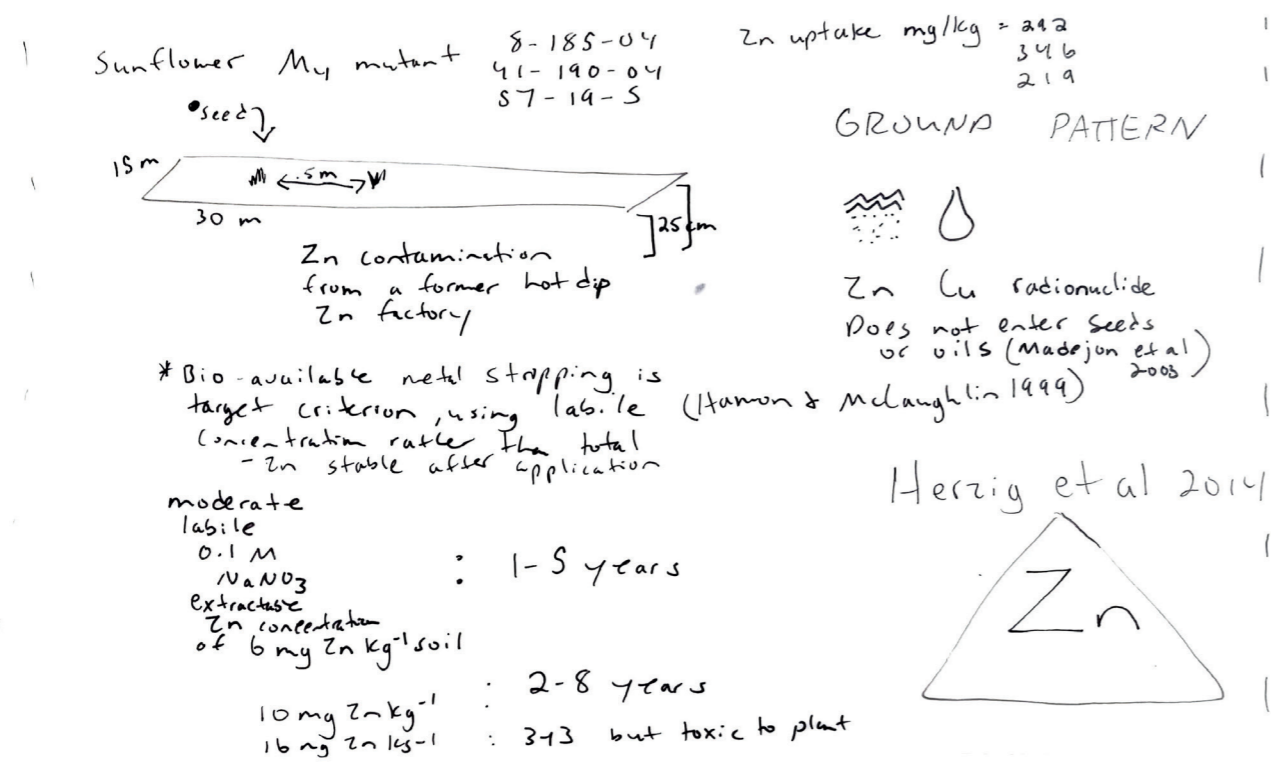 Sunflower My mutant 8-185-04
41-190-04
57-19-5
Zn uptake mg/kg = 292
346
219
GROUND PATTERN
seed
15 m
.5m
30 m
25 cm
Zn contamination
from a former hot dip
Zn factory
Zn Cu radionuclide
Does not enter seeds
or oils (Madejon et al
2003)
* Bio-available metal stripping is
target criterion, using labile (Hamon & McLaughlin 1999)
concentration rather than total
- Zn stable after application
Herzig et al 2014
Zn
moderate
labile
0.1 M
NaNO3
extractable
Zn concentration
of 6 mg Zn kg-1 soil
: 1-5 years
10 mg Zn kg-1 : 2-8 years
16 mg Zn kg-1 : 3-13 but toxic to plant